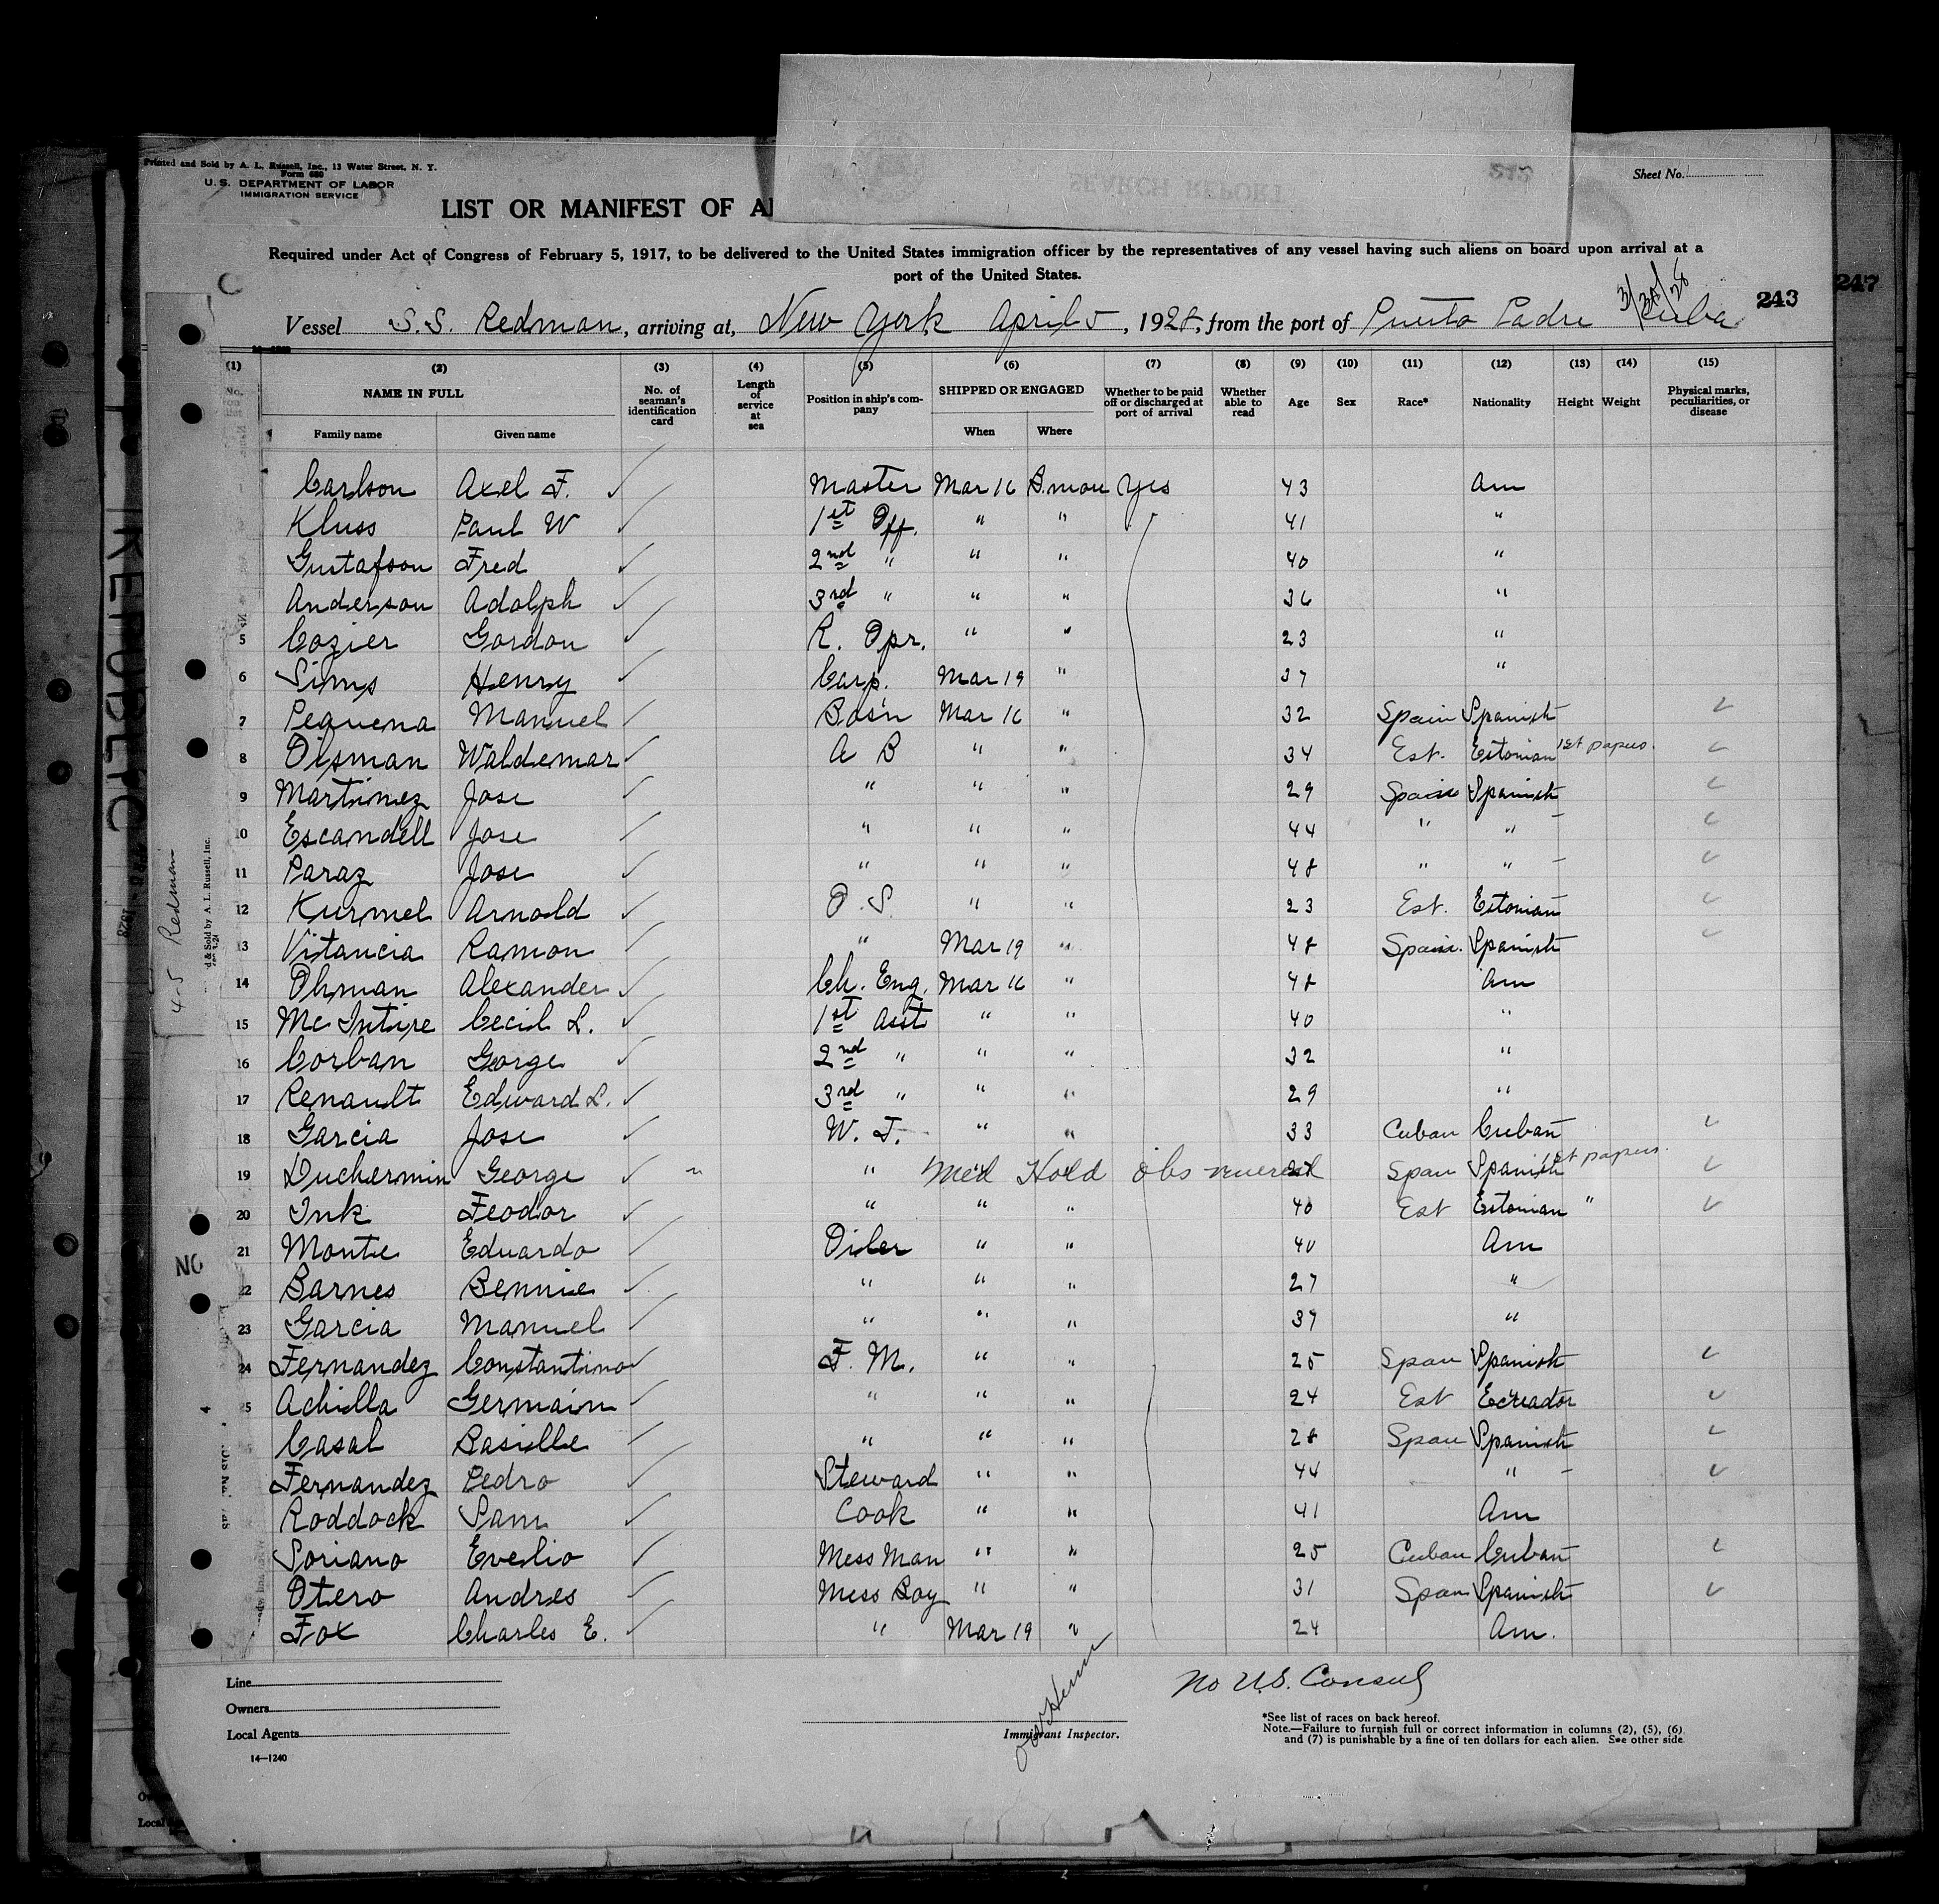 Printed and Sold by A. L. Russell, Inc., 13 Water Street, N. Y.
Form 680
U. S. DEPARTMENT OF LABOR
IMMIGRATION SERVICE
SEARCH REPORT
Sheet No.
LIST OR MANIFEST OF
Required under Act of Congress of February 5, 1917, to be delivered to the United States immigration officer by the representatives of any vessel having such aliens on board upon arrival at a
port of the United States.
3/30/28
243
247
Vessel S.S. Redman, arriving at, New York April 5, 1928, from the port of Puerto Padre Cuba
(1) (2) (3) (4) (5) (6) (7) (8) (9) (10) (11) (12) (13) (14) (15)
NAME IN FULL No. of seaman's identification card Length of service at sea Position in ship's company SHIPPED OR ENGAGED Whether to be paid off or discharged at port of arrival Whether able to read Age Sex Race* Nationality Height Weight Physical marks, peculiarities, or disease
Family name Given name When Where
Carlson Axel F. Master Mar 16 B.more Yes 43 Am
Kluss Paul W 1st Off. " " 41 "
Gustafson Fred 2nd " " " 40 "
Anderson Adolph 3rd " " " 36 "
5 Cozier Gordon R. Opr. " " 23 "
6 Sims Henry Carp. Mar 19 " 37 "
7 Pequena Manuel Bos'n Mar 16 " 32 Spain Spanish
8 Oisman Waldemar A B " " 34 Est. Estonian 1st papers.
9 Martinez Jose " " " 29 Spain Spanish
10 Escandell Jose " " " 44 " "
11 Paraz Jose " " " 48 " "
12 Kurmel Arnold O. S. " " 23 Est. Estonian
13 Vitancia Ramon " Mar 19 " 48 Spain. Spanish
14 Ohman Alexander Ch. Eng. Mar 16 " 48 Am
15 Mc Intire Cecil L. 1st Asst " " 40 "
16 Corban George 2nd " " " 32 "
17 Renault Edward L. 3rd " " " 29 "
18 Garcia Jose W. T. " " 33 Cuban Cuban
19 Duchermin George " Med Hold obs Span Spanish 1st papers.
20 Ink Feodor " " " 40 Est Estonian "
21 Monte Eduardo Oiler " " 40 Am
22 Barnes Bennie " " " 27 "
23 Garcia Manuel " " " 37 "
24 Fernandez Constantino F. M. " " 25 Span Spanish
25 Achilla Germain " " " 24 Est Ecuador
Casal Basille " " " 28 Span Spanish
Fernandez Pedro Steward " " 44 "
Roddock Sam Cook " " 41 Am
Soriano Evelio Mess Man " " 25 Cuban Cuban
Otero Andres Mess Boy " " 31 Span Spanish
Fox Charles E. " Mar 19 " 24 Am.
Line
Owners
Local Agents
14—1240
Immigrant Inspector.
No U.S. Consul
*See list of races on back hereof.
Note.—Failure to furnish full or correct information in columns (2), (5), (6)
and (7) is punishable by a fine of ten dollars for each alien. See other side
4-5 Redman
d & Sold by A. L. Russell, Inc.
REPUBLIC
1928
NO